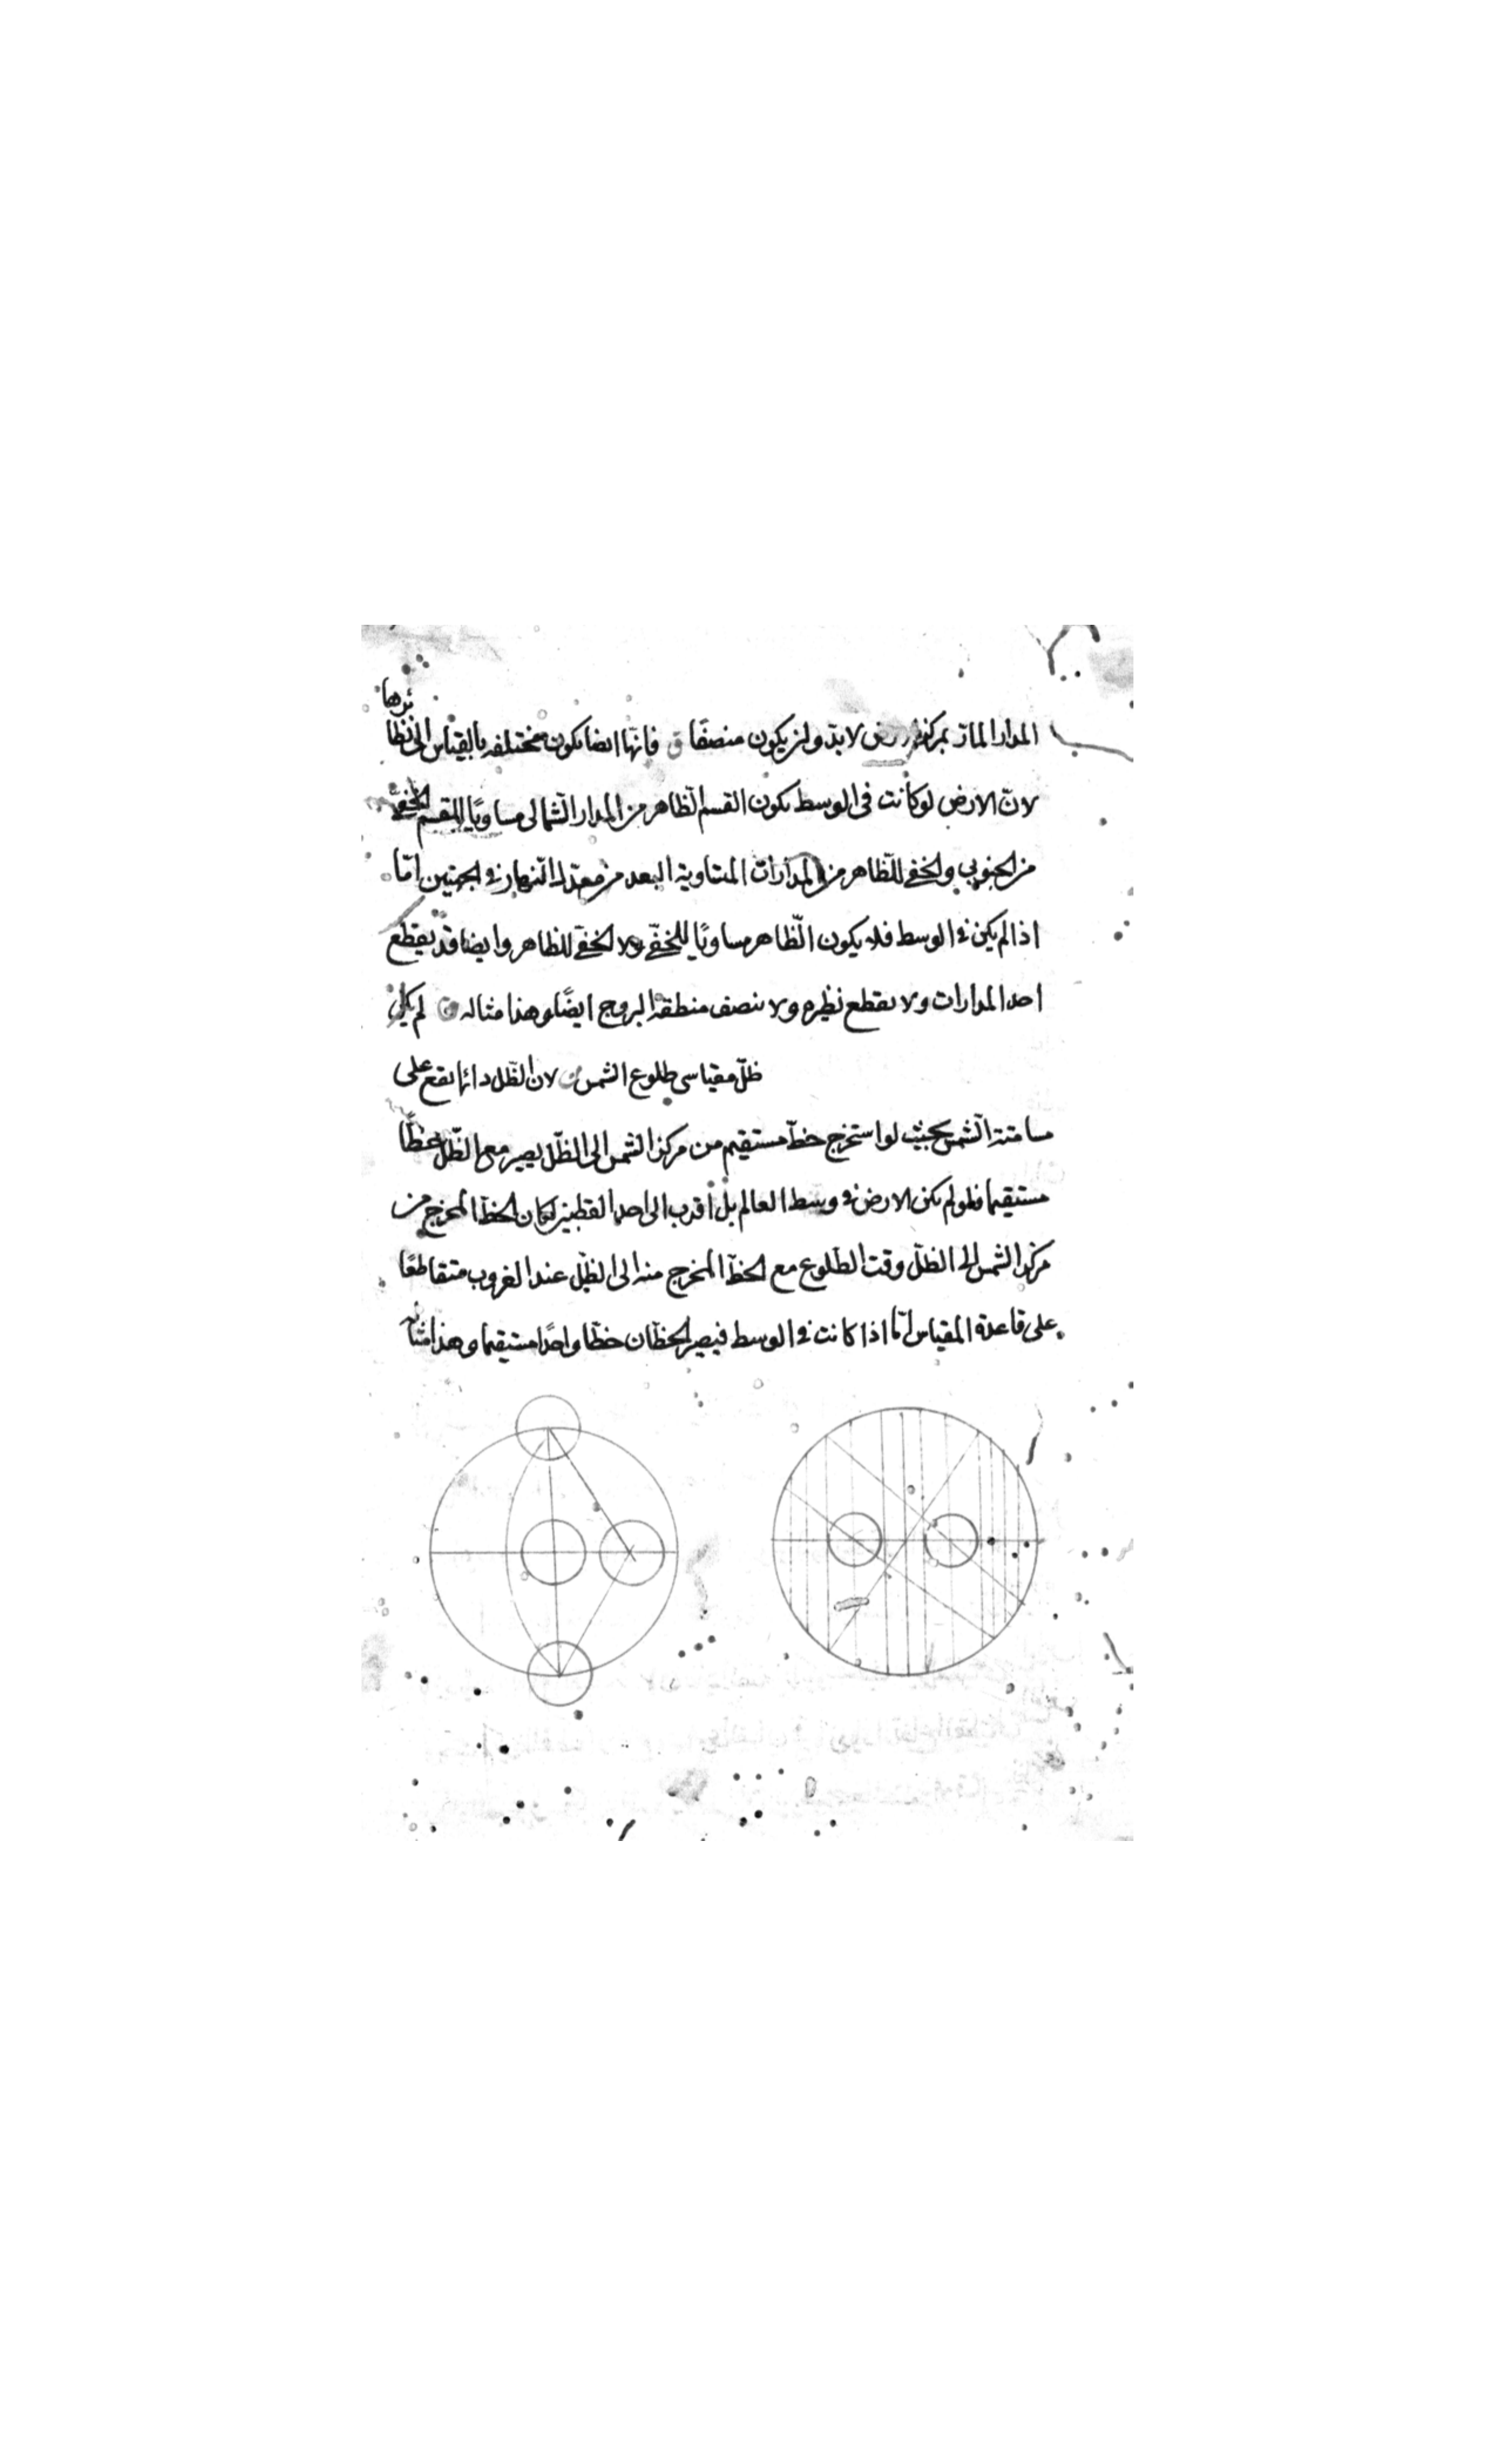 المدار المارّ بمركز الارض لا بدّ ولن يكون منصفًا ق فانّها ايضا يكون مختلفه بالقياس الى نظا
ئرها
لانّ الارض لو كانت فى الوسط يكون القسم الظّاهر من المدار الشّمالى مساويًا للقسم الخفىّ
من الجنوبى والخفى للظّاهر من المدارات المتساوية البعد من معدّل النّهار فى الجهتين امّا
اذا لم يكن فى الوسط فلا يكون الظّاهر مساويًا للخفىّ ولا الخفىّ للظاهر وايضا قد يقطع
احد المدارات ولا يقطع نظيره ولا ينصف منطقة البروج ايضًا وهذا مثاله ق لم يكن
ظلّ مقياسى طلوع الشمس لان الظّل دائما يقع على
مسامتة الشّمس بحيث لو استخرج خطّ مستقيم من مركز الشمس الى الظّل يصير مع الظّل خطًّا
مستقيما فلو لم يكن الارض فى وسط العالم بل اقرب الى احد القطبين لكان الخطّ المخرج من
مركز الشمس الى الظلّ وقت الطّلوع مع الخطّ المخرج منه الى الظّل عند الغروب متقاطعًا
على قاعدة المقياس امّا اذا كانت فى الوسط فيصير الخطّان خطّا واحدًا مستقيما وهذا مثاله